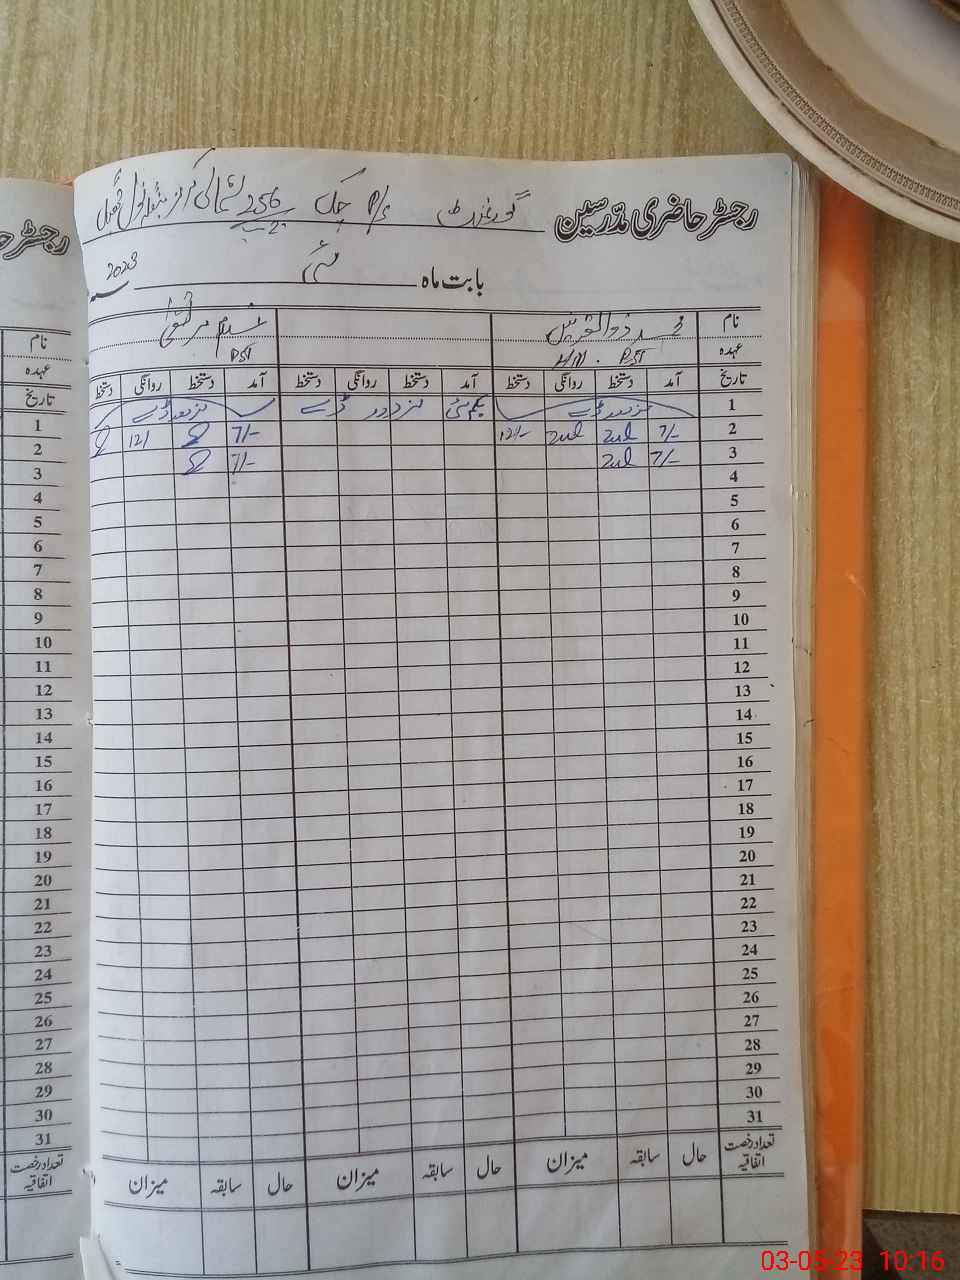 رجسٹر حاضری مدرسین گورنمنٹ P/S چک 256
بابت ماہ مئی 2023
نام محمد ذوالقرنین
عہدہ H/M. PST PST
تاریخ آمد دستخط روانگی دستخط آمد دستخط روانگی دستخط آمد دستخط روانگی دستخط
1 مزدور ڈے یکم مئی مزدور ڈے مزدور ڈے
2 7/- Zul Zul 12/- 7/- 12/
3 7/- Zul 7/-
4
5
6
7
8
9
10
11
12
13
14
15
16
17
18
19
20
21
22
23
24
25
26
27
28
29
30
31
تعداد رخصت اتفاقیہ حال سابقہ میزان حال سابقہ میزان حال سابقہ میزان
رجسٹر
نام
عہدہ
تاریخ
1
2
3
4
5
6
7
8
9
10
11
12
13
14
15
16
17
18
19
20
21
22
23
24
25
26
27
28
29
30
31
تعداد رخصت
اتفاقیہ
03-05-23 10:16